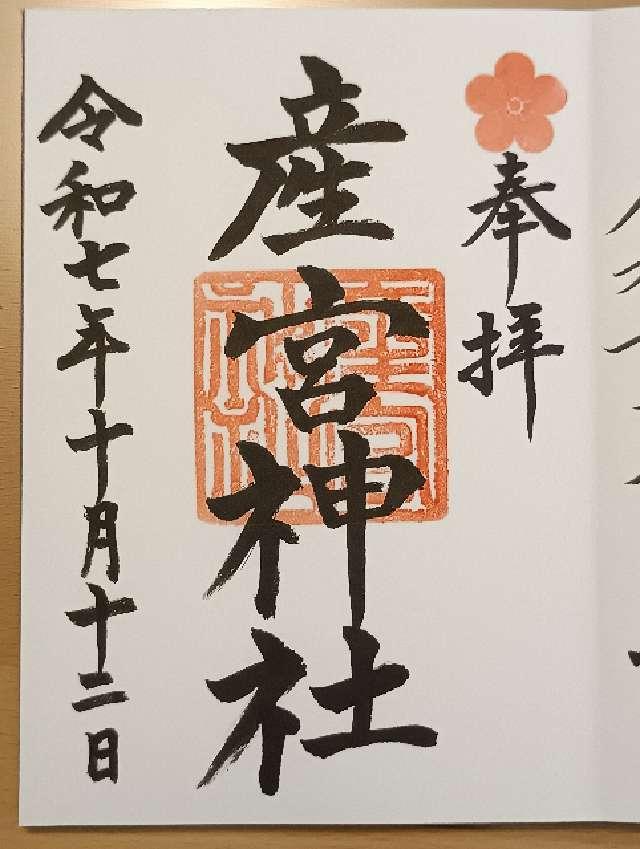 奉拝
産宮神社
令和七年十月十二日